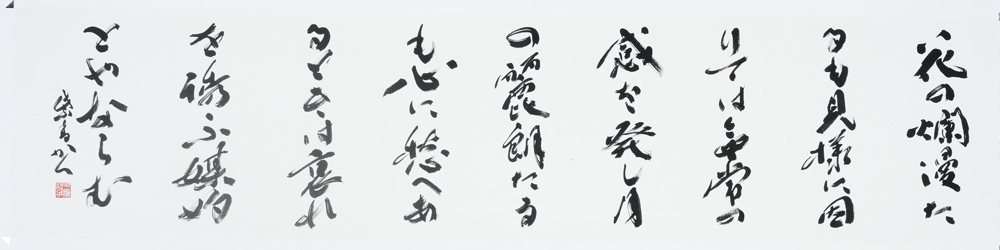 花の爛漫た
るも見様に因
りては無常の
感を発し月
の麗朗たる
も心に愁へあ
るときは哀れ
を誘ふ媒妁
とやならむ